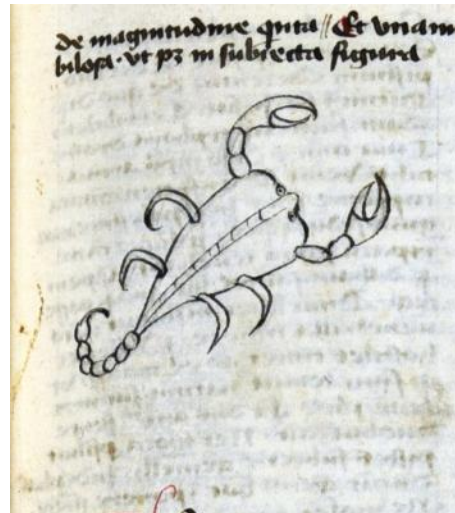 de magnitudine quinta // Et vnam
bilosa · vt pꝫ in subiecta figura